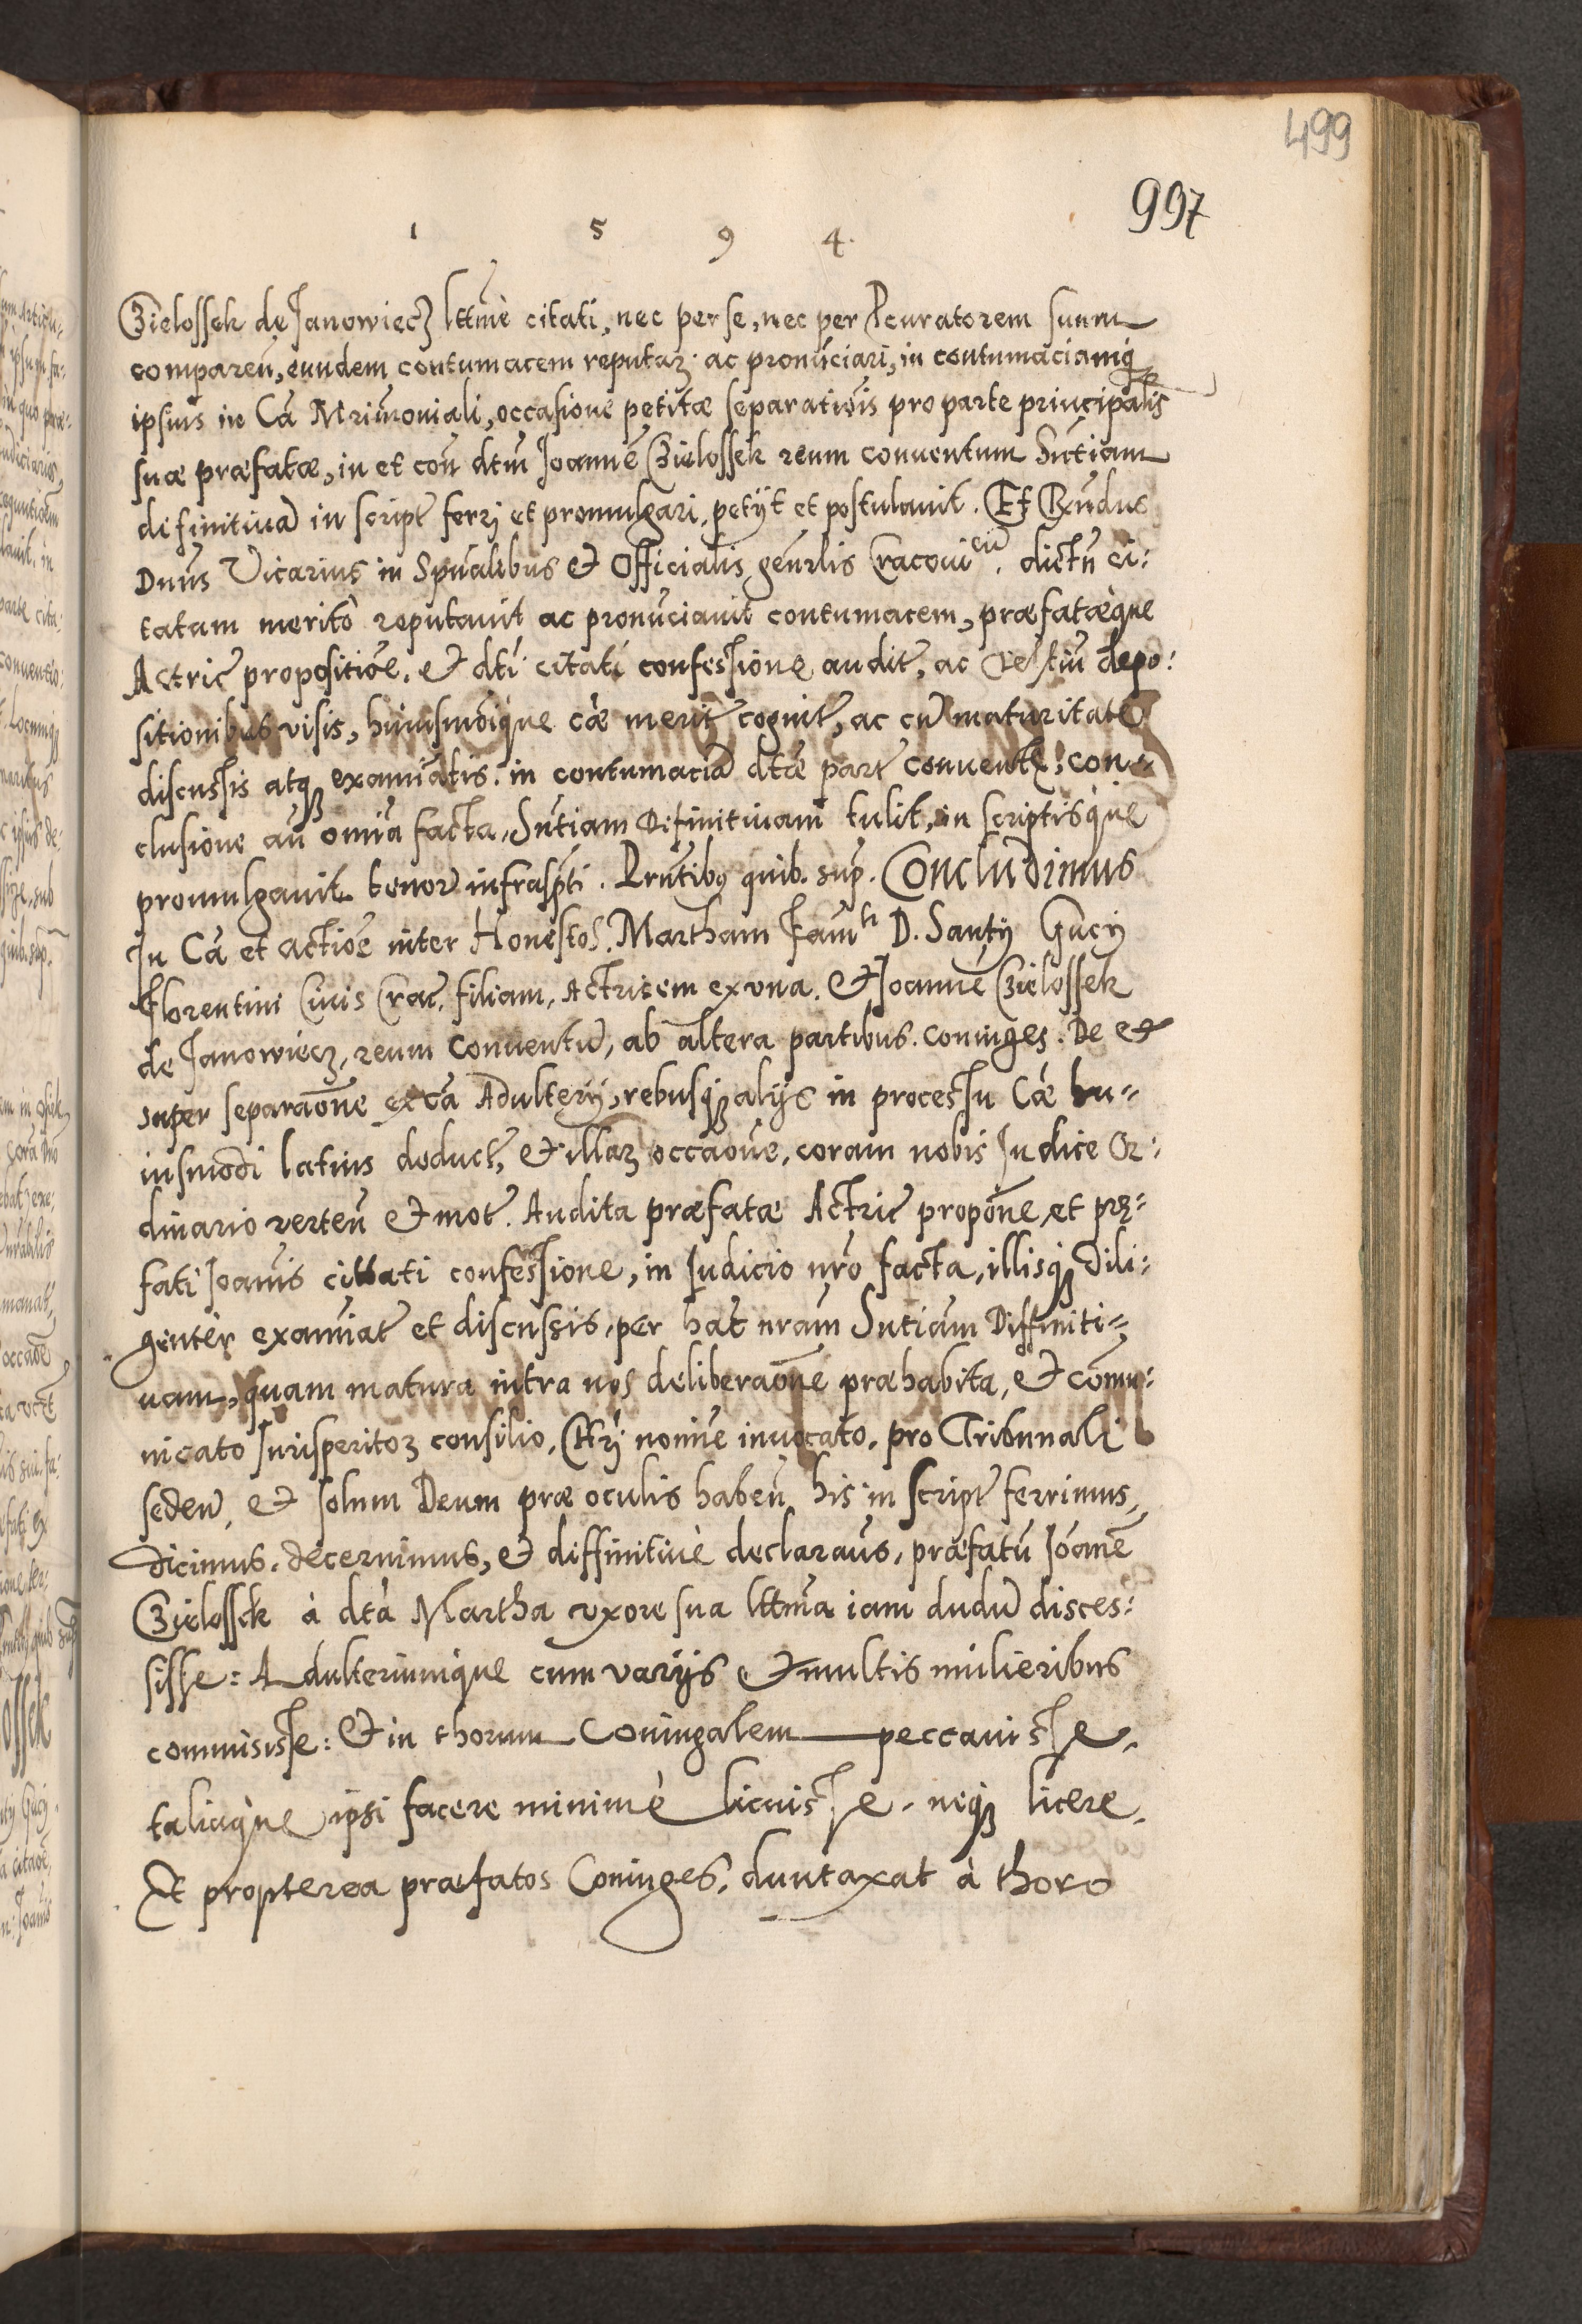 499
997
1 5 9 4.
Bielossek de Janowiecz lttime citati, nec per se, nec per Pcuratorem suum
comparen, eundem contumacem reputaz. ac pronuciari, in contumaciamq
ipsius in Ca Mrimoniali, occasione petitæ separationis pro parte principalis
suæ præfatæ, in et con dtm Joanne Bielossek reum conuentum Sntiam
definitiua in script ferrj et promulgari, petijt et postulauit. Et Rndus
Dnus Vicarius in Spualibus et Officialis genrlis Cracouien. dictu ci:
tatum merito reputauit ac pronuciauit contumacem, præfatæque
Actric propositioe, et dti citati confessione audit, ac testiu depo:
sitionibus visis, huiusmoique cæ merit cognit, ac cu maturitate
discussis atq examiatis. in contumacia dtæ part conuentę, con=
clusione au omia facta, Sntiam Definitiuam tulit, in scriptisque
promulgauit tenor infraspti. Prntibus quib. sup. Concludimus
In Ca et actioe inter Honestos. Martham Fam D. Santy Gucy
Florentini Ciuis Crac. filiam, Actricem ex vna. et Joanne Bielossek
de Janowiecz, reum Conuentu, ab altera partibus. coniuges. De et
super separaone ex ca Adulterij, rebusq alijs in processu Cæ hu=
iusmodi latius deduct, et illaz occaone, coram nobis Judice Or:
dinario verten et mot. Audita præfatæ Actric propone et prę=
fati Joanis citati confessione, in Judicio nro facta, illisq dili:
genter examiat et discussis, per hac nram Sntiam Diffiniti=
uam, quam matura intra nos deliberaone præhabita, et comu:
nicato Jurisperitoz consilio, Chri nomie inuocato, pro Tribunali
seden, et solum Deum præ oculis haben his in script ferrimus,
dicimus, decernimus, et diffinitiue declaraus, præfatu Joane
Bielossek à dta Martha vxore sua lttima iam dudu disces:
sisse: Adulteriumque cum varijs et multis mulieribus
commisisse: Et in thorum Coniugalem peccauisse,
taliaque ipsi facere minimè licuisse, neq licere,
Et propterea præfatos Coniuges, duntaxat à thoro